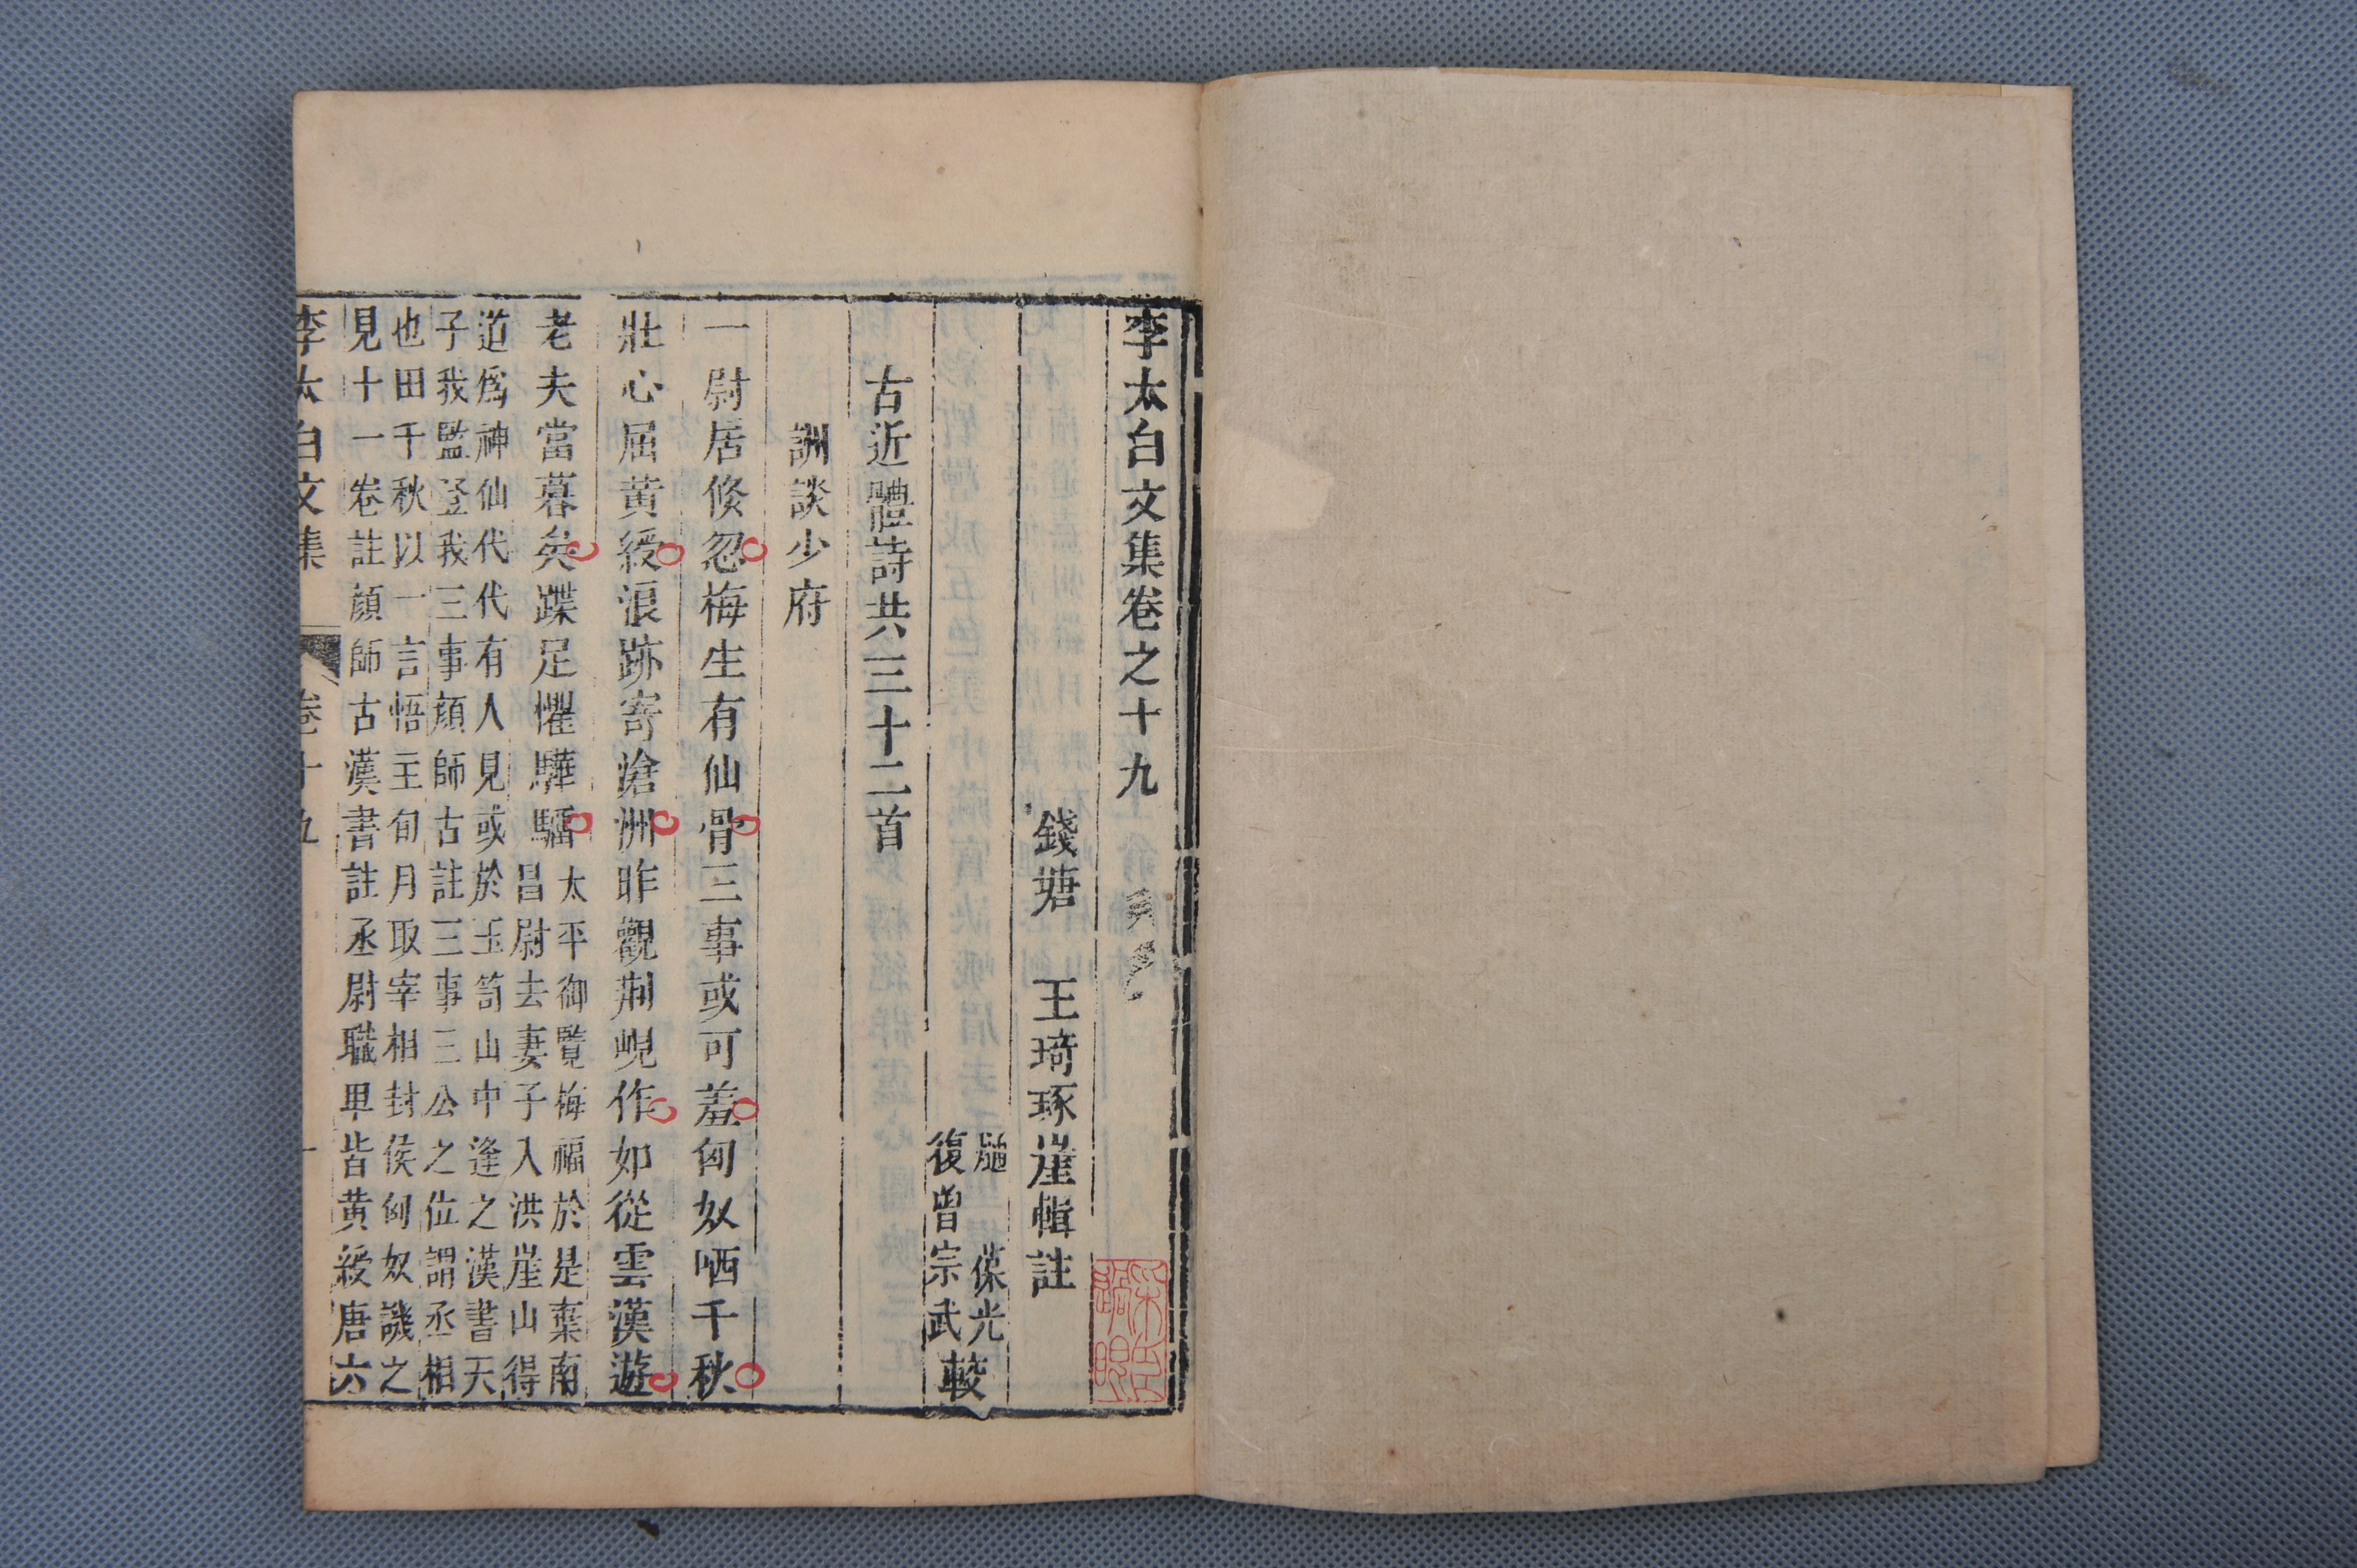 李太白文集卷之十九
錢塘 王琦琢崖輯註
葆光
復曾宗武 較
古近體詩共三十二首
詶談少府
一尉居倐忽梅生有仙骨三事或可羞匈奴哂千秋
壯心屈黃綬浪跡寄滄洲昨觀荆峴作如從雲漢遊
老夫當暮矣蹀足懼驊騮
太平御覽梅福於是棄南
昌尉去妻子入洪崖山得
道爲神仙代代有人見或於玉笥山中逢之漢書天
子我監登我三事顔師古註三事三公之位謂丞相
也田千秋以一言悟主旬月取宰相封侯匈奴譏之
見十一卷註顔師古漢書註丞尉職卑皆黃綬唐六
李太白文集 卷十九 一